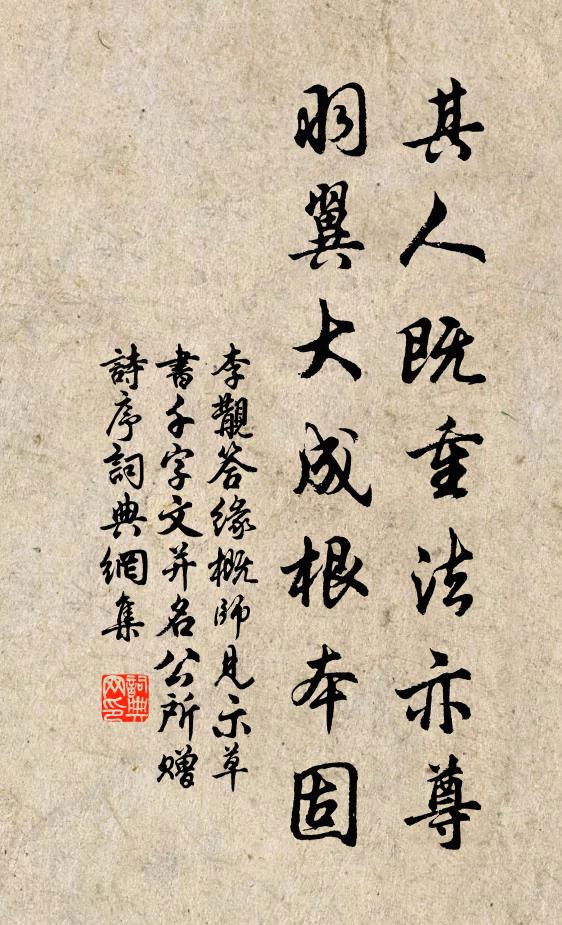 其人既重法亦尊
羽翼大成根本固
李觀答緣概師見示草
書千字文并名公所贈
詩序詞典網集
詞典网印